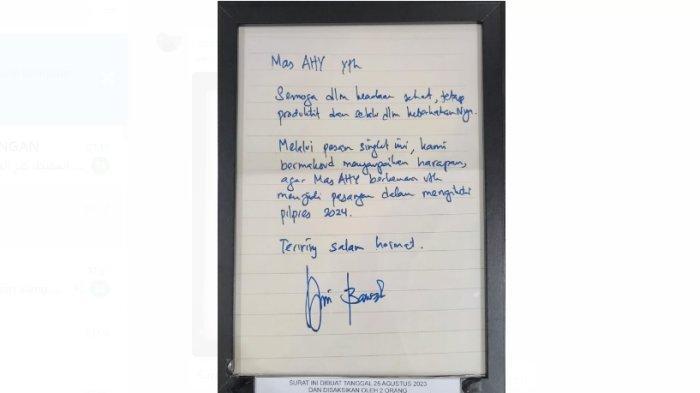 NGAN
Mas AHY yth
Semoga dlm keadaan sehat, tetap
produktif dan selalu dlm keberkahanNya.
Melalui pesan singkat ini, kami
bermaksud menyampaikan harapan,
agar Mas AHY berkenan utk
menjadi pasangan dalam mengikuti
pilpres 2024.
Teriring salam hormat.
SURAT INI DIBUAT TANGGAL 25 AGUSTUS 2023
DAN DISAKSIKAN OLEH 2 ORANG